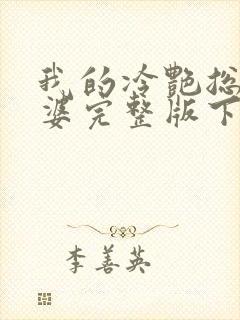 我的冷艷总
婆完整版下
李善英